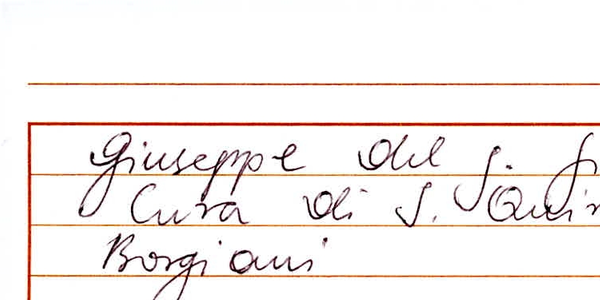 Giuseppe del
Cura di S.
Borgiani